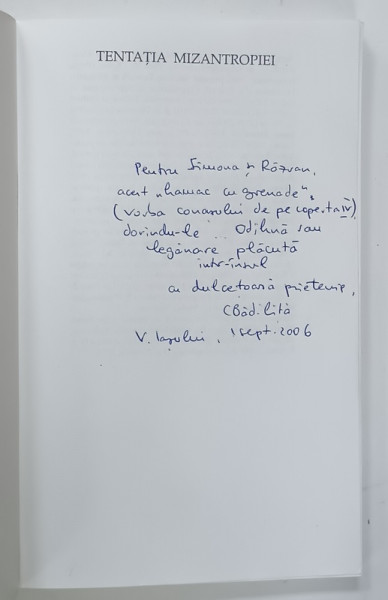 TENTAȚIA MIZANTROPIEI
Pentru Simona și Răzvan,
acest „hamac cu grenade”,
(vorba conașului de pe coperta IV)
dorindu-le .. Odihnă sau
legănare plăcută
într-însul
cu dulcețoară prietenie,
CBădiliță
V. Iașului, 1 sept. 2006